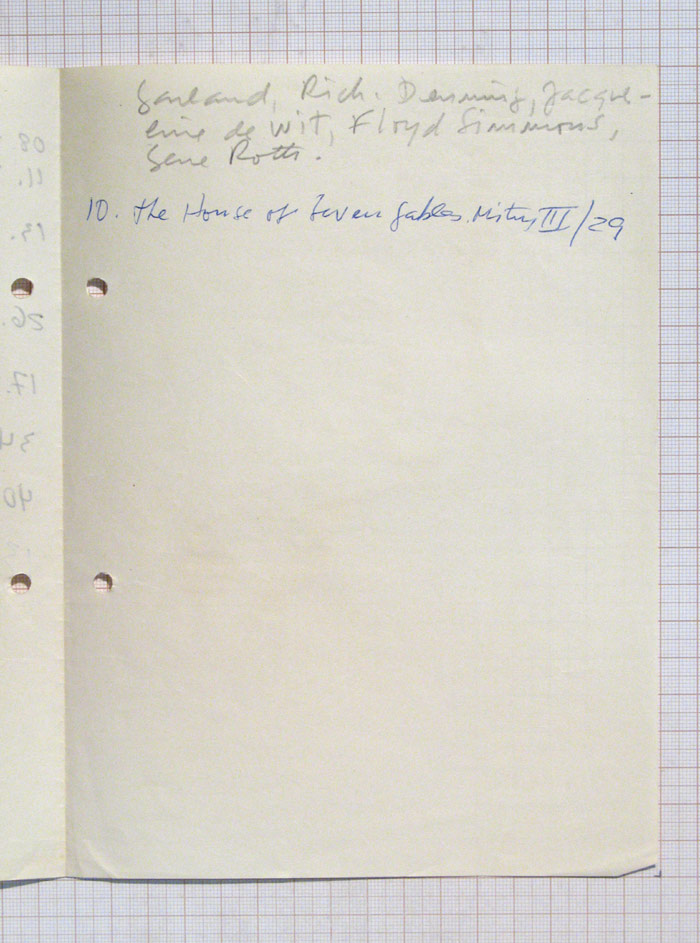 Garland, Rich. Denning, Jacque-
line de Wit, Floyd Simmons,
Gene Roth.
10. The House of Seven Gables. III/29
08
11.
13.
26.
17.
34
40